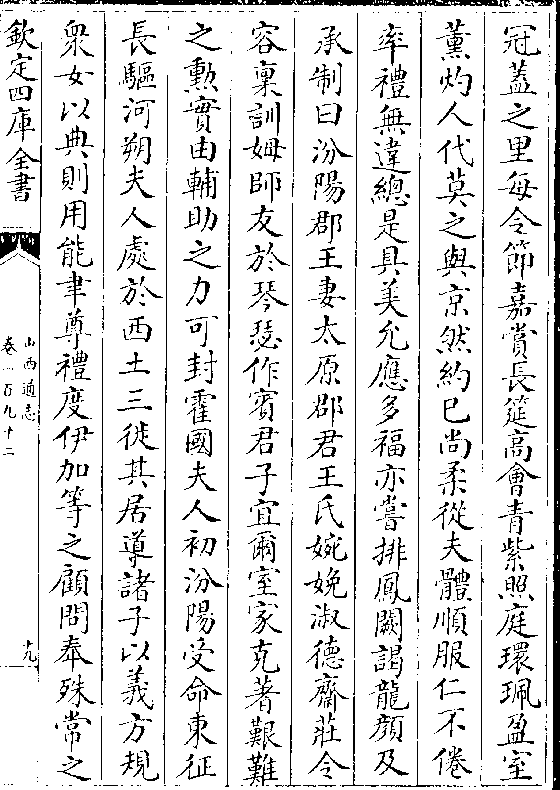 冠蓋之里每令節嘉賞長筵高會青紫照庭環珮盈室
薰灼人代莫之與京然約已尚柔從夫體順服仁不倦
率禮無違總是具美允應多福亦嘗排鳳闕謁龍顔及
承制曰汾陽郡王妻太原郡君王氏婉娩淑德齋莊令
容稟訓姆師友於琴瑟作賓君子宜爾室家克著艱難
之勲實由輔助之力可封霍國夫人初汾陽受命東征
長驅河朔夫人處於西土三徙其居導諸子以義方規
衆女以典則用能聿尊禮度伊加等之顧問奉殊常之
欽定四庫全書
山西通志
卷一百九十二
十九